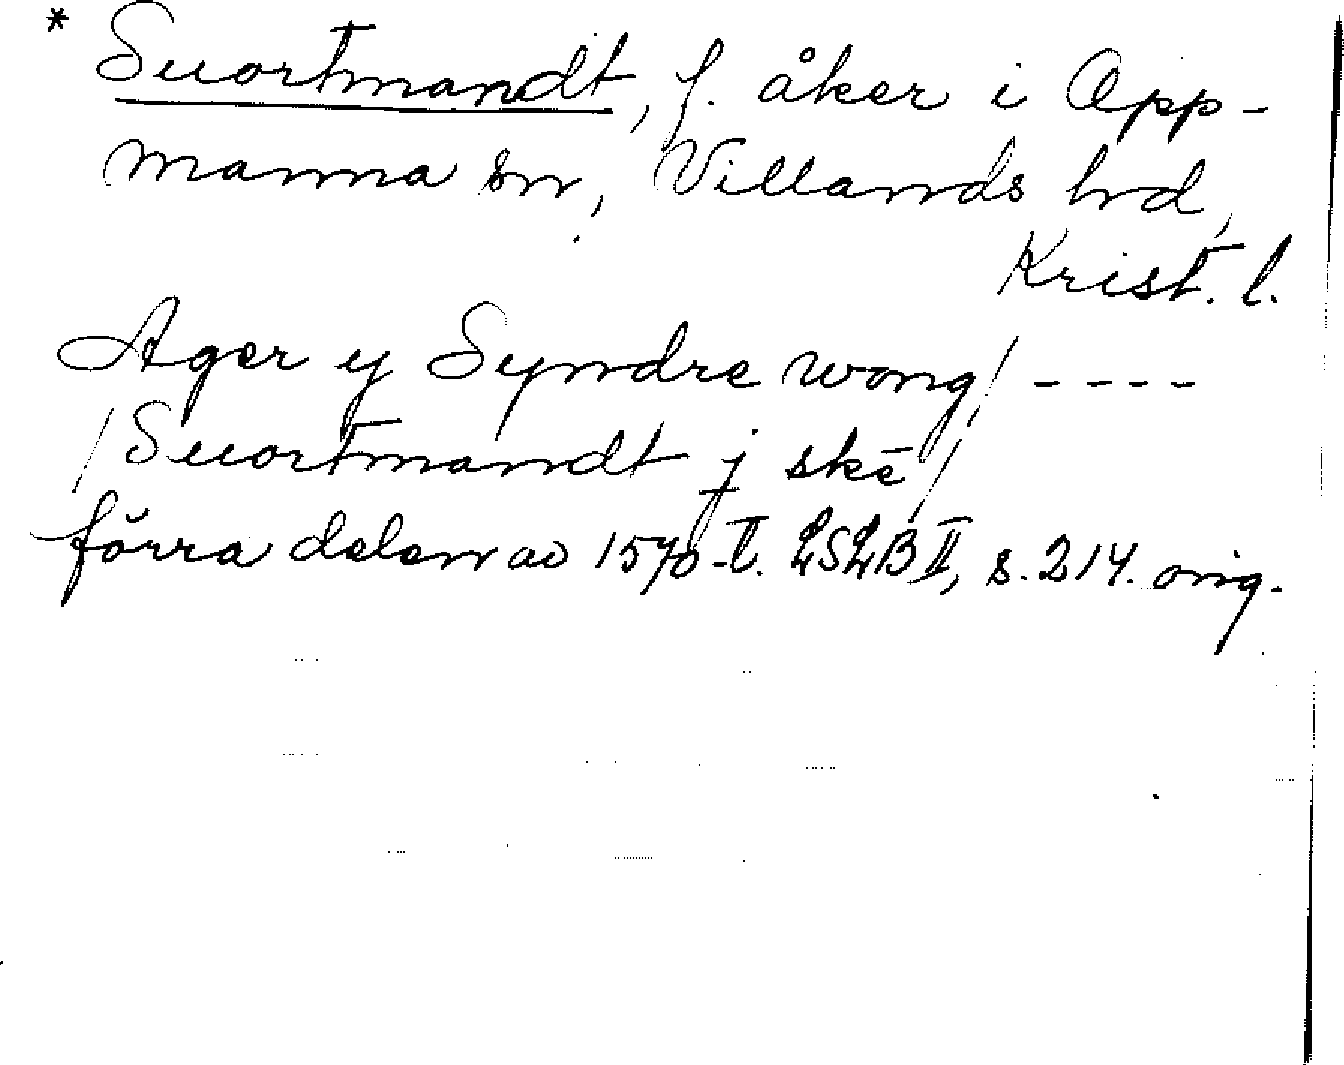 * Suortmandt, f. åker i Opp-
manna sn, Villands hd,
Krist. l.
Ager y Syndre wong / - - - -
/ Suortmandt j skē /
förra delen av 1570-t. LSLB II, s. 214. orig.